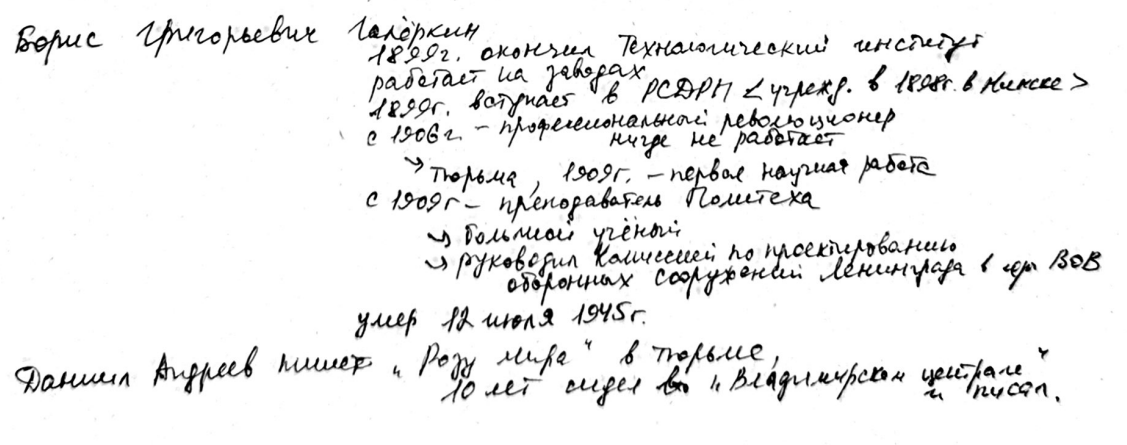 Борис Григорьевич Галёркин
1899г. окончил Технологический институт
работает на заводах
1899г. вступает в РСДРП <учрежд. в 1898г. в Минске>
с 1906г. – профессиональный революционер
нигде не работает
↳ тюрьма, 1909г. – первая научная работа
с 1909г – преподаватель Политеха
↳ большой учёный
↳ руководил Комиссией по проектированию
оборонных сооружений Ленинграда в годы ВОВ
умер 12 июля 1945г.
Даниил Андреев пишет „Розу мира“ в тюрьме,
10 лет сидел во „Владимирском централе“
и писал.